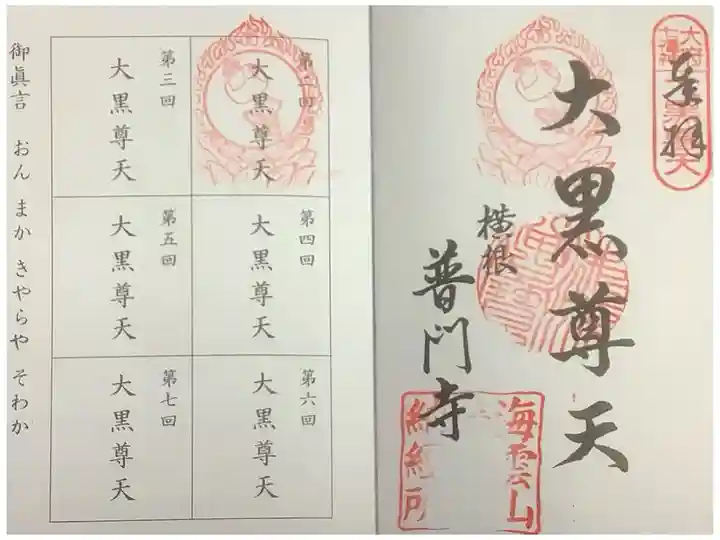 奉拝
大黒尊天
横根
普門寺
海雲山
納経所
第二回
大黒尊天
第三回
大黒尊天
第四回
大黒尊天
第五回
大黒尊天
第六回
大黒尊天
第七回
大黒尊天
御眞言　おん　まか　きやらや　そわか